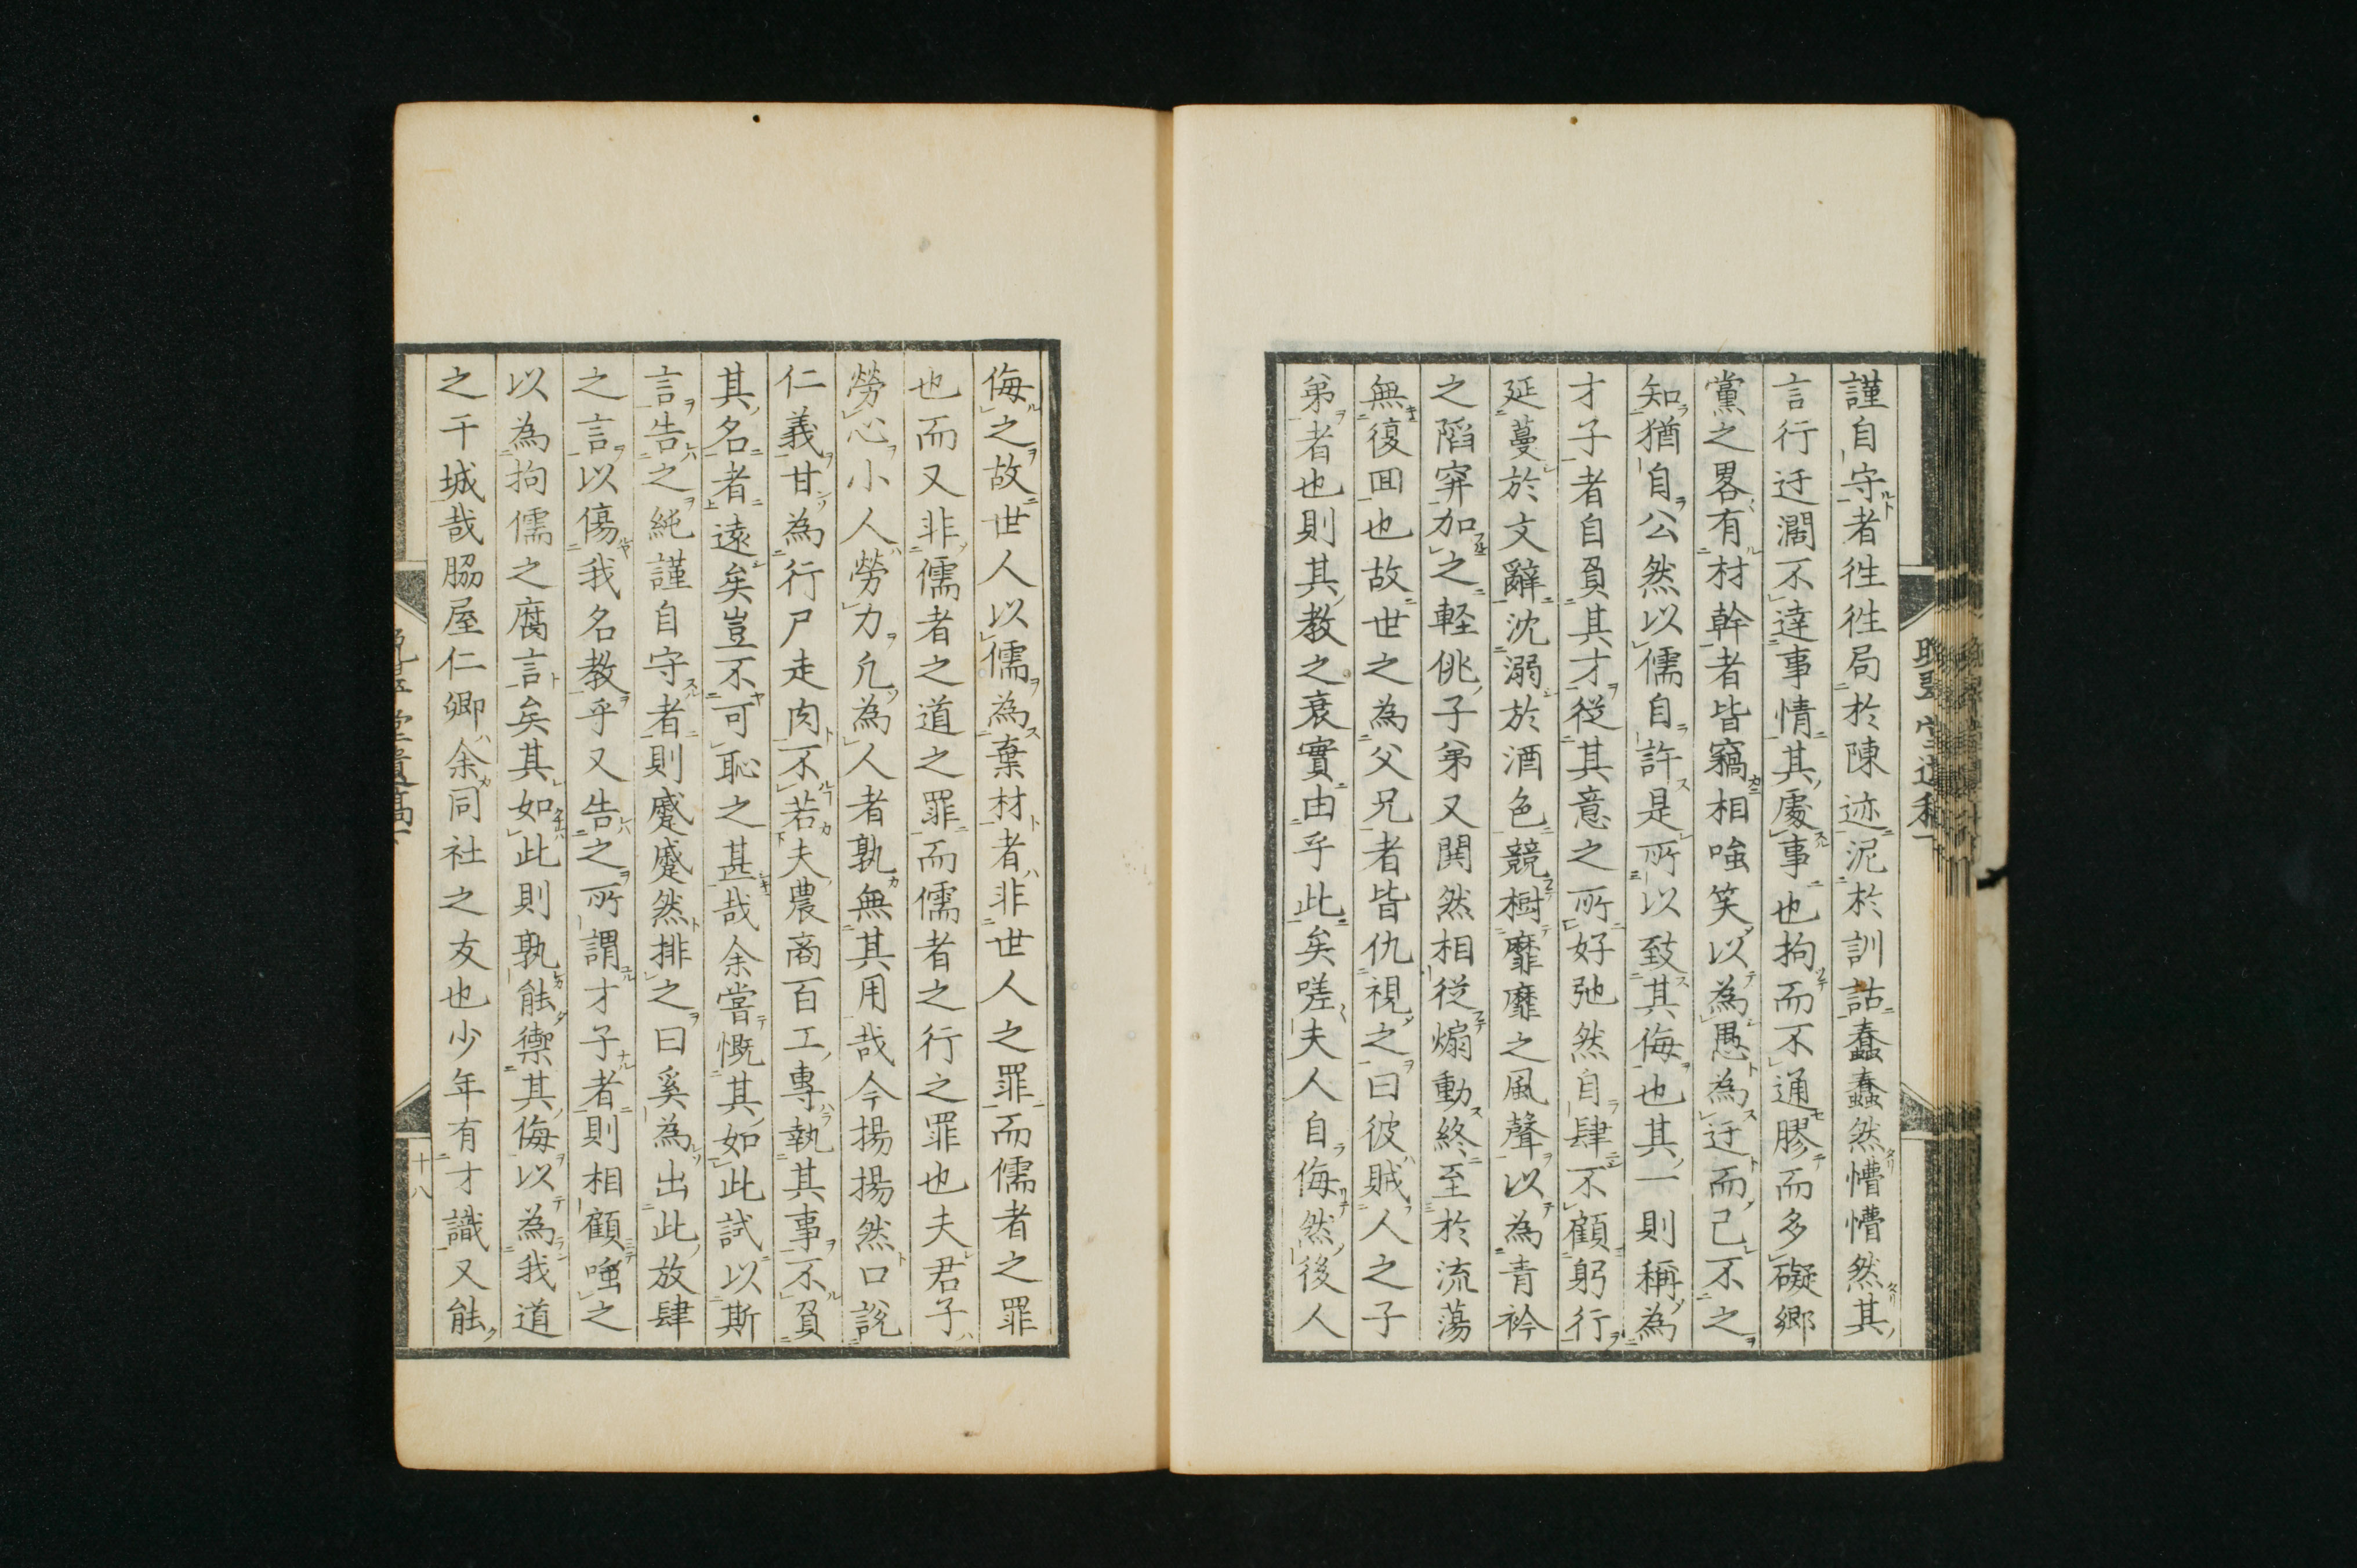 謹自守者徃徃局於陳迹泥於訓詁蠢蠢然懵懵然其
言行迂濶不達事情其處事也拘而不通膠而多礙鄉
黨之畧有材幹者皆竊相嗤笑以為愚為迂而已不之
知猶自公然以儒自許是所以致其侮也其一則稱為
才子者自負其才從其意之所好弛然自肆不顧躬行
延蔓於文辭沈溺於酒色競樹靡靡之風聲以為青衿
之陷穽加之輕佻子弟又閧然相從煽動終至於流蕩
無復回也故世之為父兄者皆仇視之曰彼賊人之子
弟者也則其教之衰實由乎此矣嗟夫人自侮然後人
侮之故世人以儒為棄材者非世人之罪而儒者之罪
也而又非儒者之道之罪而儒者之行之罪也夫君子
勞心小人勞力凢為人者孰無其用哉今揚揚然口說
仁義甘為行尸走肉不若夫農商百工專執其事不負
其名者遠矣豈不可恥之甚哉余嘗慨其如此試以斯
言告之純謹自守者則蹙蹙然排之曰奚為出此放肆
之言以傷我名教乎又告之所謂才子者則相顧嗤之
以為拘儒之腐言矣其如此則孰能禦其侮以為我道
之干城哉脇屋仁卿余同社之友也少年有才識又能
十八